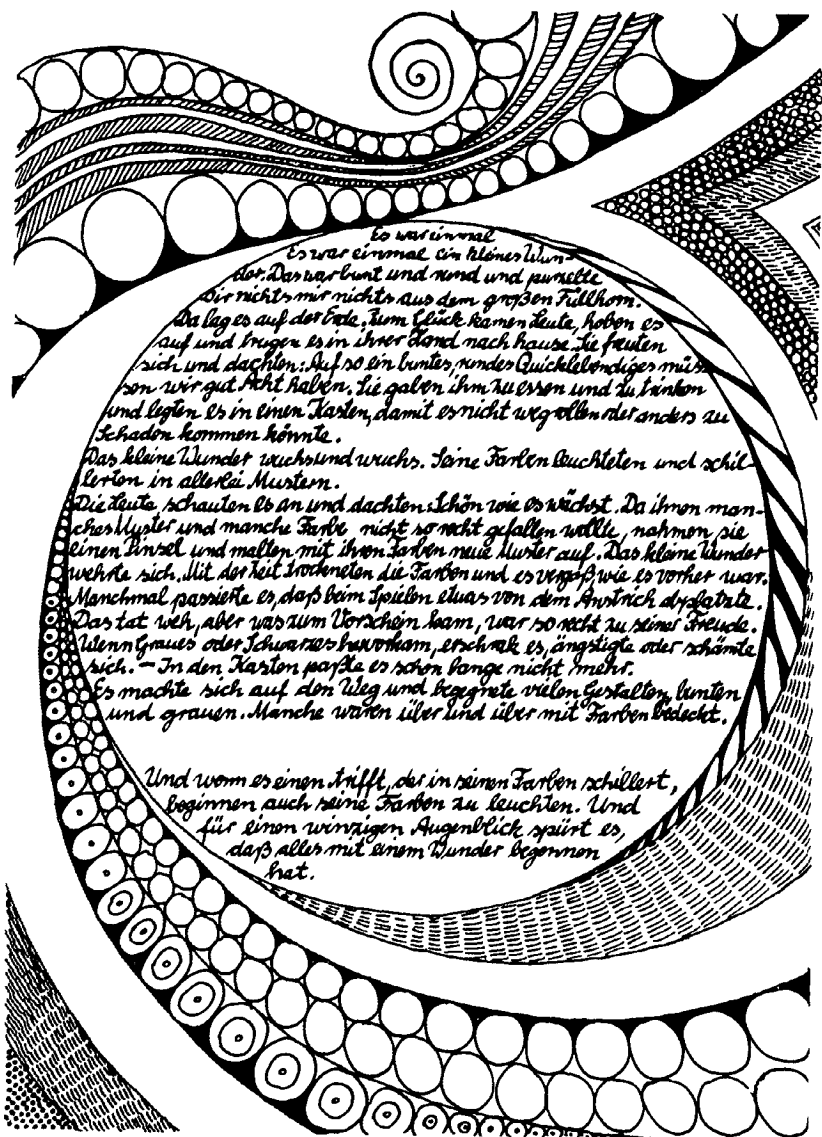 Es war einmal
Es war einmal ein kleines Wun-
der. Das war bunt und rund und purzelte
dir nichts mir nichts aus dem großen Füllhorn.
Da lag es auf der Erde. Zum Glück kamen Leute, hoben es
auf und trugen es in ihrer Hand nach hause. Sie freuten
sich und dachten: Auf so ein buntes, rundes Quicklebendiges müs-
sen wir gut Acht haben. Sie gaben ihm zu essen und zu trinken
und legten es in einen Kasten, damit es nicht wegrollen oder anders zu
Schaden kommen könnte.
Das kleine Wunder wuchs und wuchs. Seine Farben leuchteten und schil-
lerten in allerlei Mustern.
Die Leute schauten es an und dachten: Schön wie es wächst. Da ihnen man-
ches Muster und manche Farbe nicht so recht gefallen wollte, nahmen sie
einen Pinsel und malten mit ihren Farben neue Muster auf. Das kleine Wunder
wehrte sich. Mit der Zeit trockneten die Farben und es vergaß wie es vorher war.
Manchmal passierte es, daß beim Spielen etwas von dem Anstrich abplatzte.
Das tat weh, aber was zum Vorschein kam, war so recht zu seiner Freude.
Wenn Graues oder Schwarzes hervorkam, erschrak es, ängstigte oder schämte
sich. – In den Kasten paßte es schon lange nicht mehr.
Es machte sich auf den Weg und begegnete vielen Gestalten, bunten
und grauen. Manche waren über und über mit Farben bedeckt.
Und wenn es einen trifft, der in seinen Farben schillert,
beginnen auch seine Farben zu leuchten. Und
für einen winzigen Augenblick spürt es,
daß alles mit einem Wunder begonnen
hat.